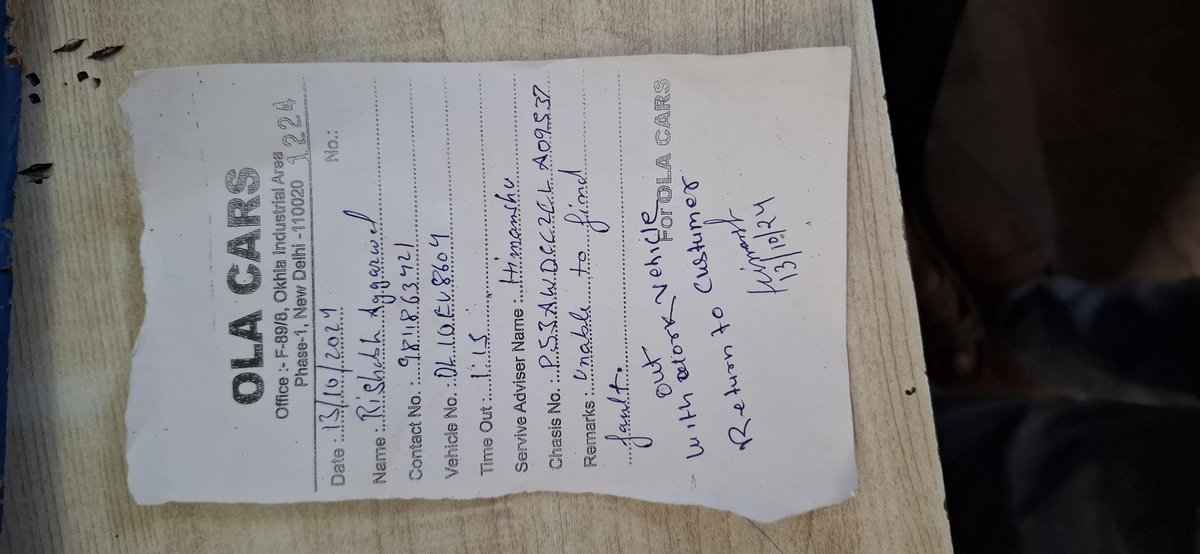 OLA CARS
Office :- F-89/8, Okhla Industrial Area
Phase-1, New Delhi -110020
1224
No.:
Date : 13/10/2024
Name : Rishabh Aggarwal
Contact No. : 9811863421
Vehicle No. : DL10EV8604
Time Out : 1:15
Servive Adviser Name : Himanshu
Chasis No. : P53AWDCC2CLA09537
Remarks : Unable to find
fault.
For OLA CARS
Out Vehicle
With work
Return to Custumer
Himanshu
13/10/24